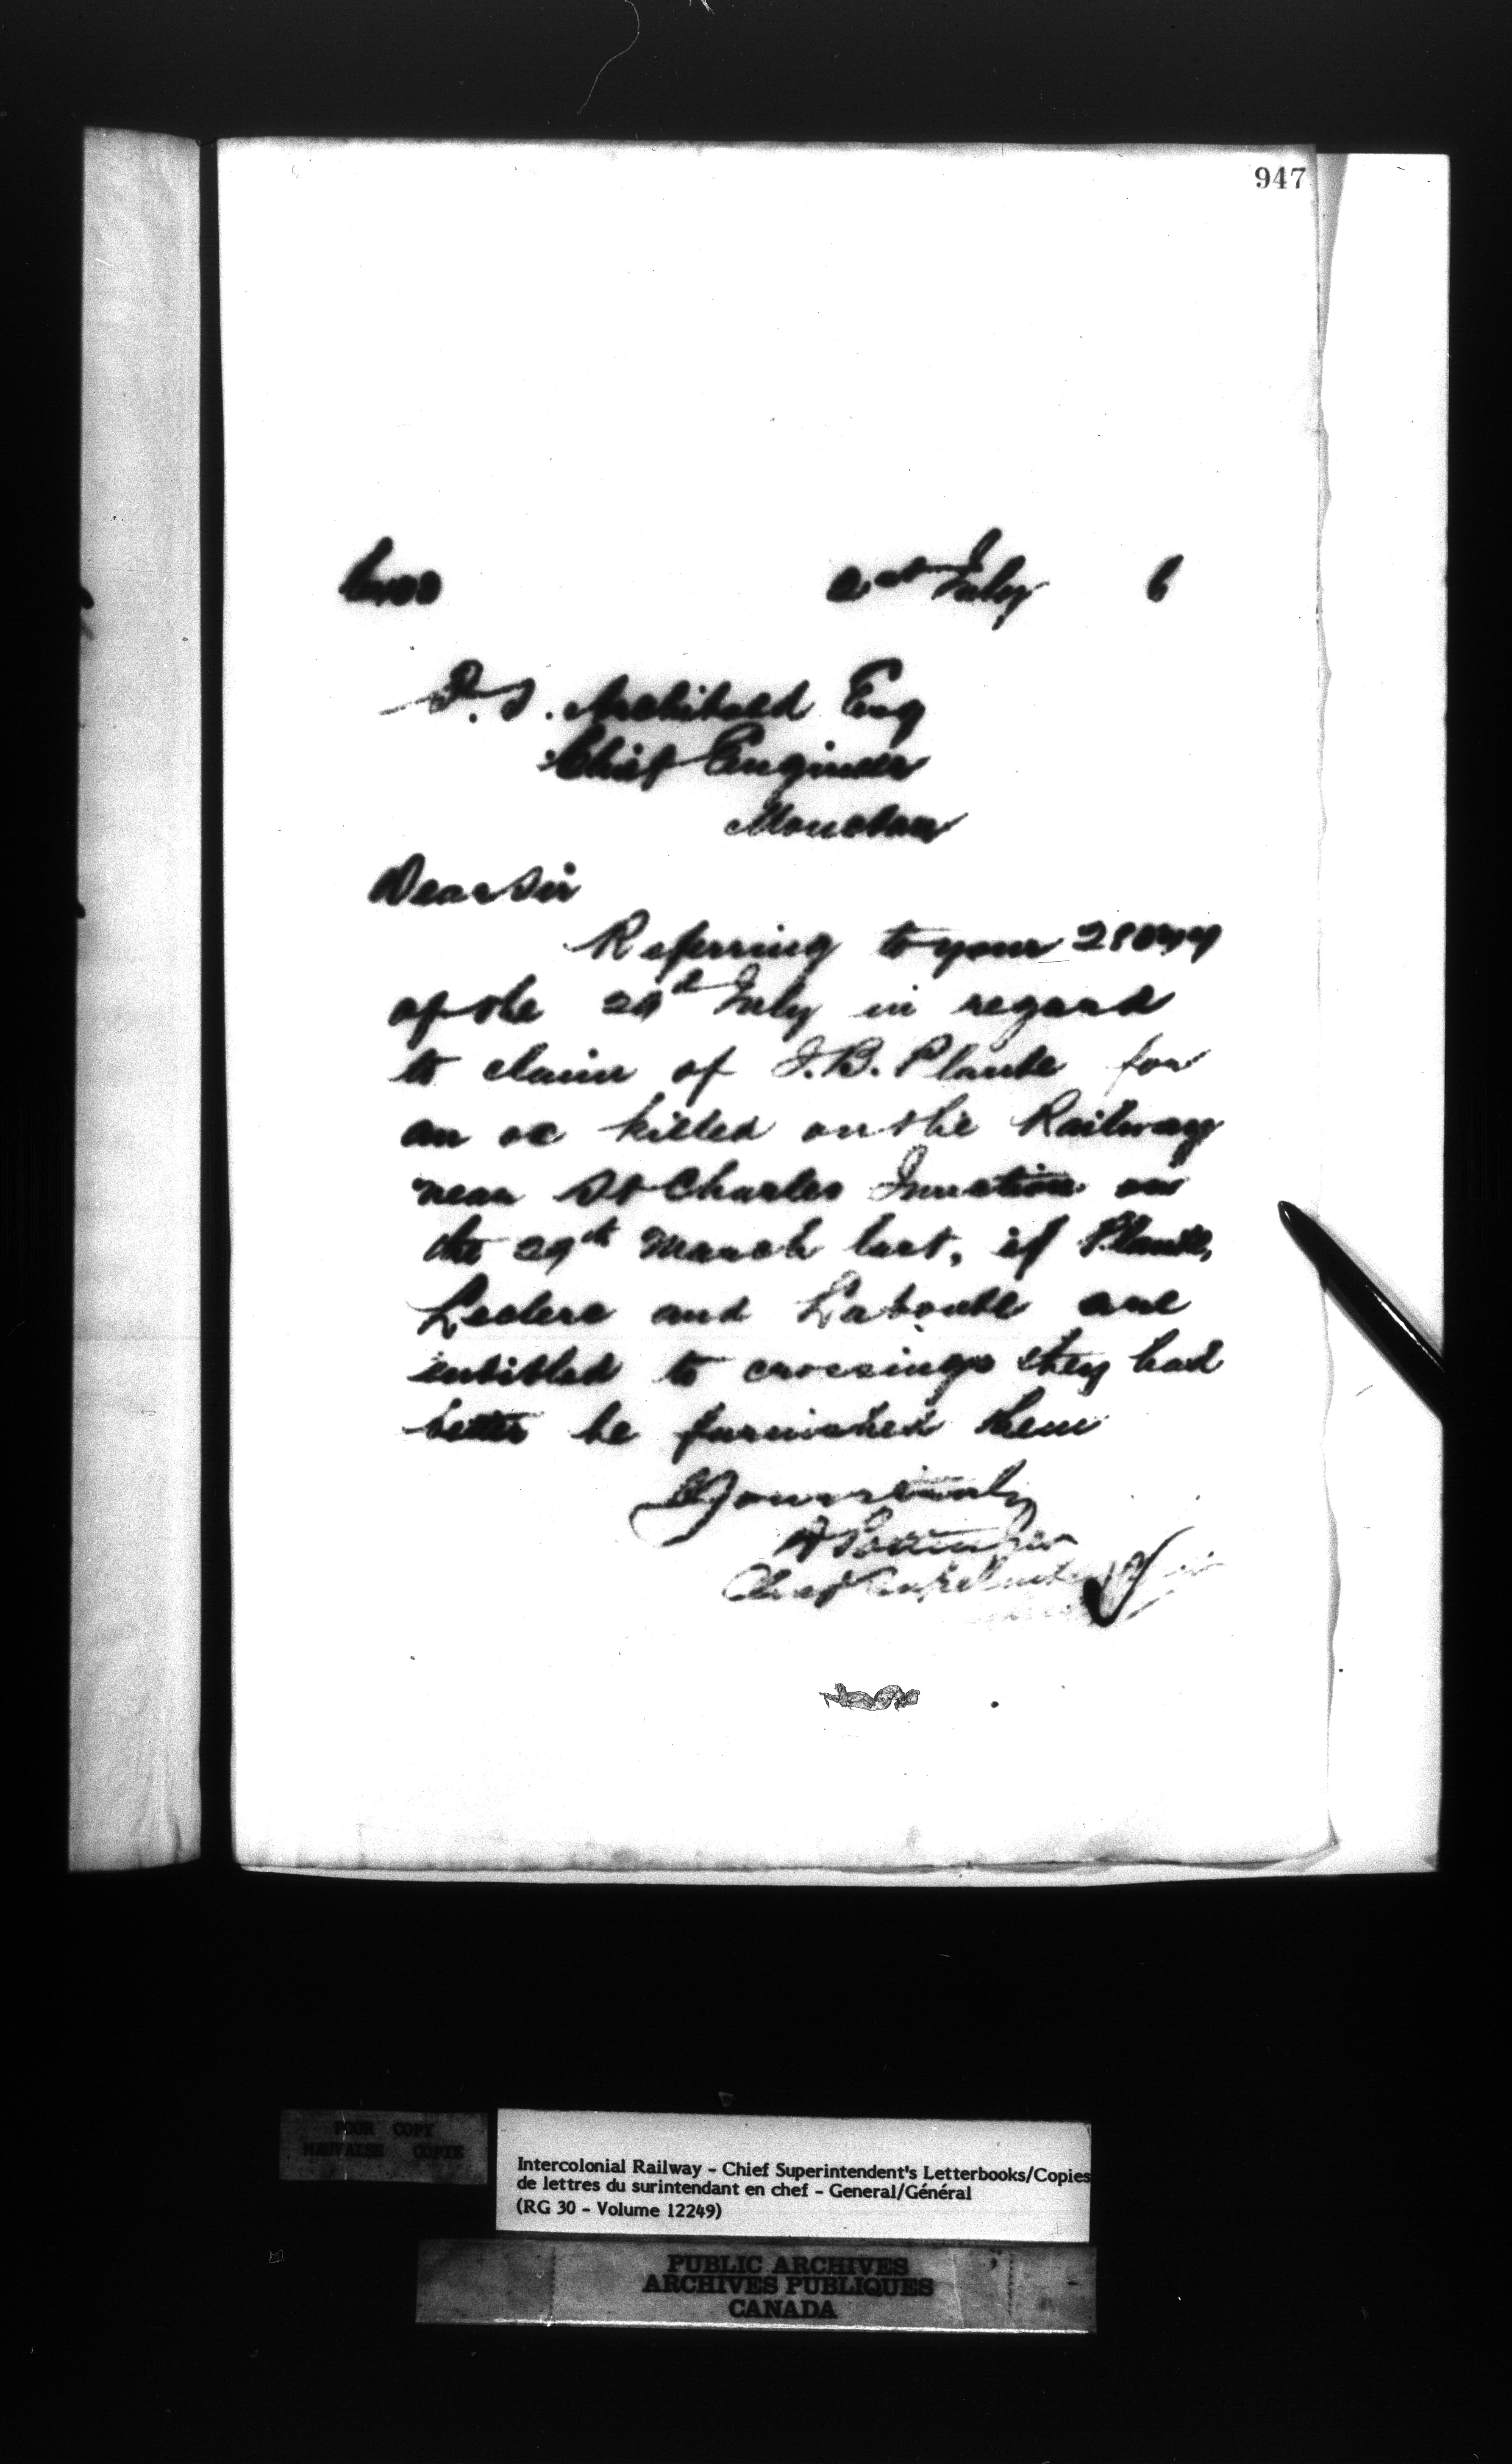 947
21st July 6
P. S. Archibald Esq
Chief Engineer
Moncton
Dear Sir
Referring to your
of the July in regard
to claim of J. B. Plante for
an ox killed on the Railway
near St Charles Junction on
the 29th March last, if Plante,
Leclerc and Labonte are
entitled to crossings they had
better be furnished them
Yours truly
D Pottinger
Chief Supt
POOR COPY
MAUVAISE COPIE
Intercolonial Railway - Chief Superintendent's Letterbooks/Copies
de lettres du surintendant en chef - General/Général
(RG 30 - Volume 12249)
PUBLIC ARCHIVES
ARCHIVES PUBLIQUES
CANADA